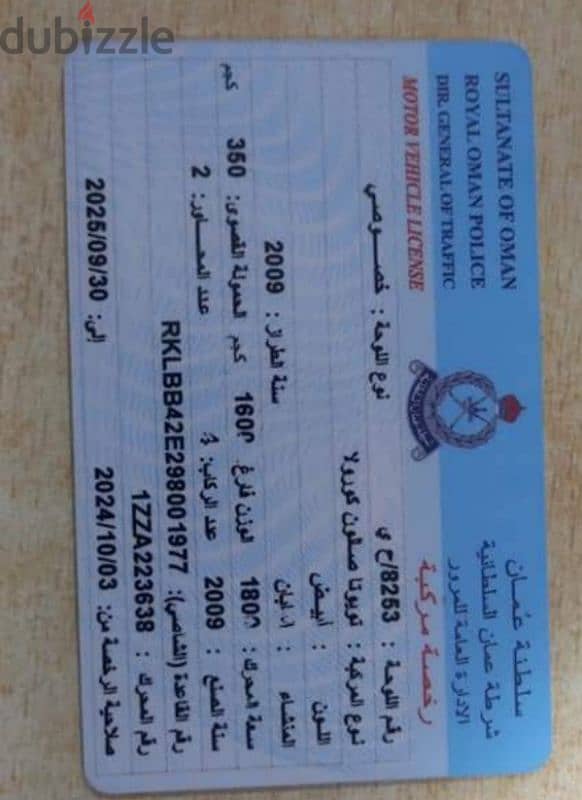 dubizzle
سلطنة عمان
SULTANATE OF OMAN
شرطة عمان السلطانية
ROYAL OMAN POLICE
الادارة العامة للمرور
DIR. GENERAL OF TRAFFIC
رخصة مركبة
MOTOR VEHICLE LICENSE
رقم اللوحة : 8253/ح ي نوع اللوحة : خصوصي
نوع المركبة : تويوتا صالون كورولا
اللون : أبيض
المنشاء : اليابان سنة الطراز : 2009
سعة المحرك : 1800 الوزن فارغ: 1600 كجم الحمولة القصوى: 350 كجم
سنة الصنع : 2009 عدد الركاب: 4 عدد المحاور : 2
رقم القاعدة (الشاصي): RKLBB42E298001977
رقم المحرك : 1ZZA223638
صلاحية الرخصة من: 2024/10/03 إلى: 2025/09/30